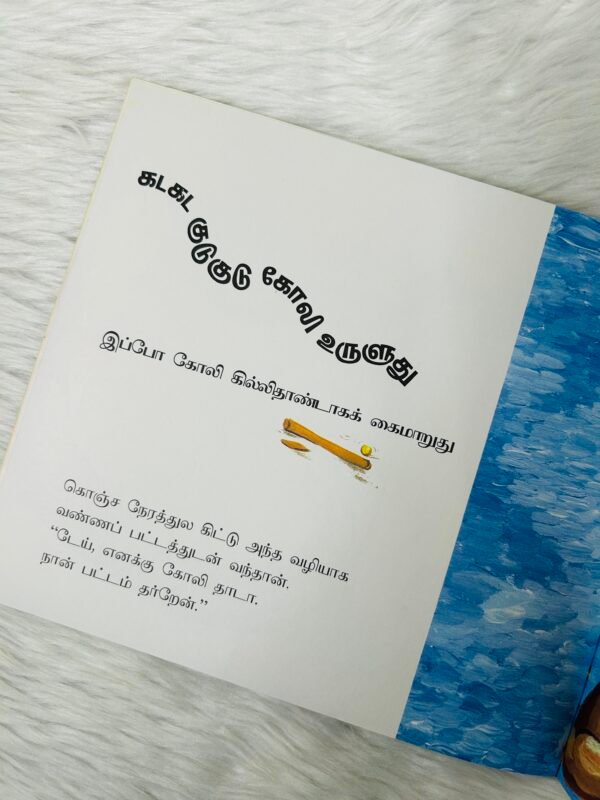 கடகட குடுகுடு கோலி உருளுது
இப்போ கோலி கில்லிதாண்டாகக் கைமாறுது
கொஞ்ச நேரத்துல கிட்டு அந்த வழியாக
வண்ணப் பட்டத்துடன் வந்தான்.
“டேய், எனக்கு கோலி தாடா.
நான் பட்டம் தர்றேன்.”